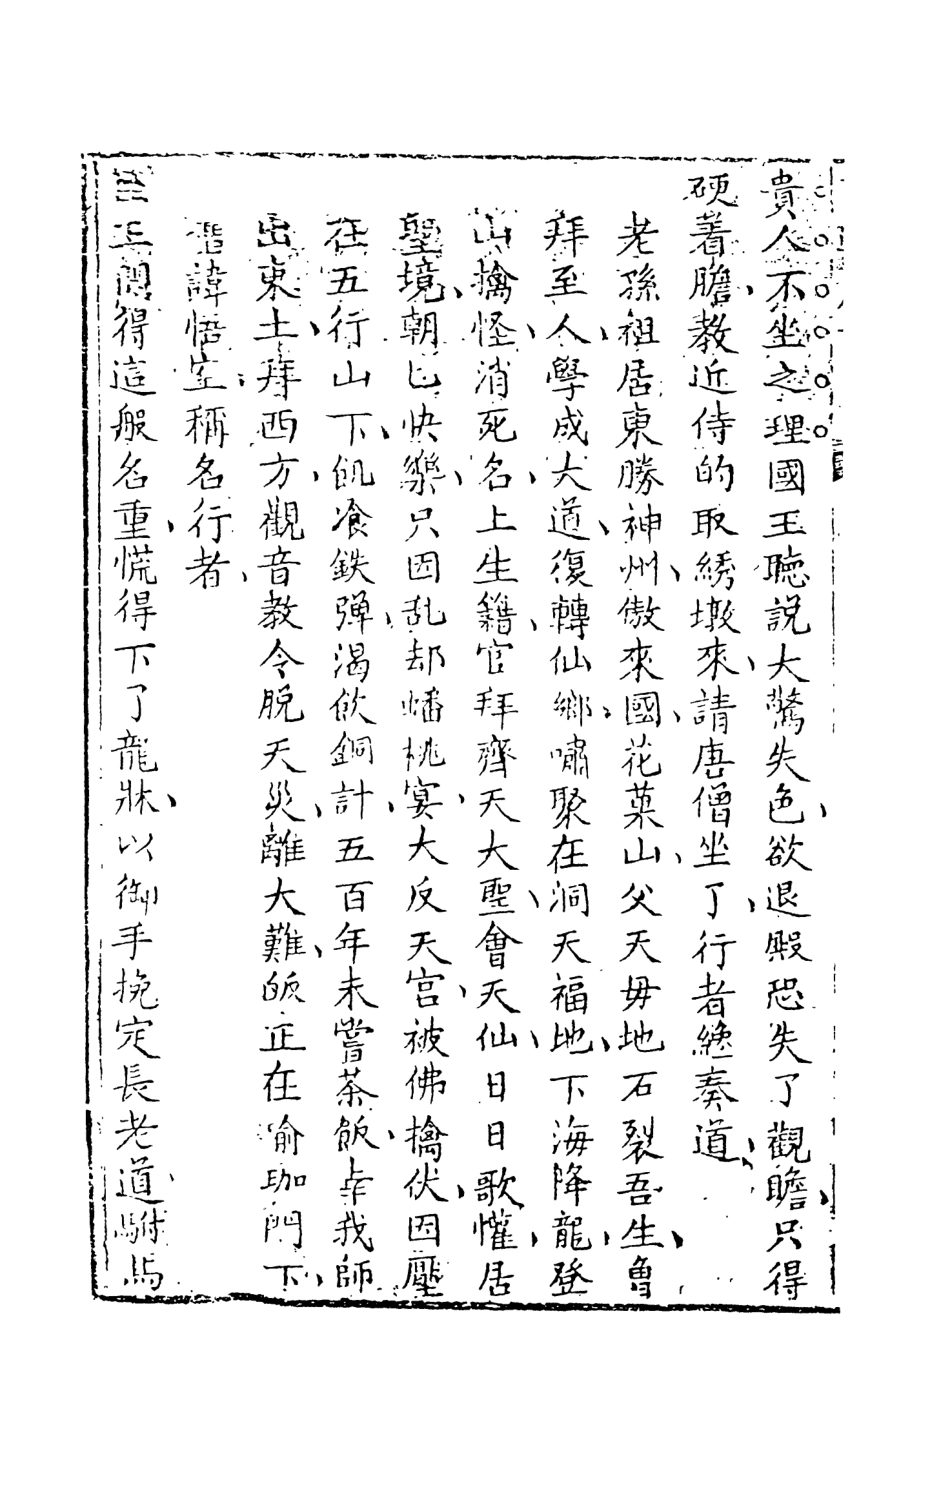 貴人不坐之理國王聽説大驚失色欲退殿恐失了觀瞻只得
硬着膽教近侍的取綉墩來請唐僧坐了行者纔奏道
老孫祖居東勝神州傲來國花菓山父天毋地石裂吾生曾
拜至人學成大道復轉仙鄉嘯聚在洞天福地下海降龍登
山擒怪消死名上生籍官拜齊天大聖會天仙日日歌懽居
聖境朝巳快樂只因乱却蟠桃宴大反天宮被佛擒伏因壓
在五行山下飢飡鉄弹渴飲銅計五百年未嘗茶飯幸我師
出東土拜西方觀音教令脱天災離大難皈正在喻珈門下
舊諱悟空稱名行者
國王聞得這般名重慌得下了龍牀以御手挽定長老道駙馬